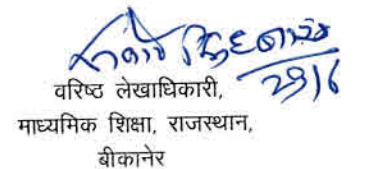 29/6
वरिष्ठ लेखाधिकारी,
माध्यमिक शिक्षा, राजस्थान,
बीकानेर